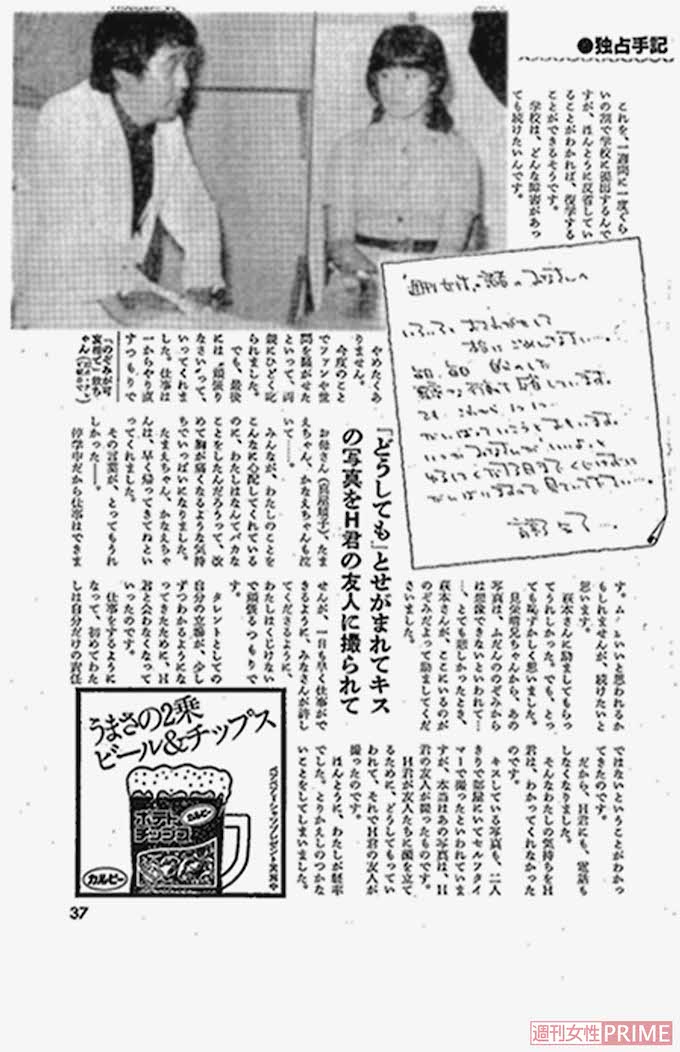 ●独占手記
これを、一週間に一度ぐら
いの割で学校に提出するんで
すが、ほんとうに反省してい
ることがわかれば、復学する
ことができるそうです。
学校は、どんな障害があっ
ても続けたいんです。
やめたくあ
りません。
今度のこと
でファンや世
間を騒がせた
といって、両
親にひどく叱
られました。
でも、最後
には〝頑張り
なさい〟って、
いってくれま
した。仕事は
一からやり直
すつもりで
「のぞみが可
ゃん
お母さん、たま
えちゃん、かなえちゃんも泣
いて――。
みんなが、わたしのことを
こんなに心配してくれている
のに、わたしはなんてバカな
ことをしたんだろうって、改
めて胸が痛くなるような気持
ちでいっぱいになりました。
たまえちゃん、かなえちゃ
んは、早く帰ってきてねとい
ってくれました。
その言葉が、とってもうれ
しかった――。
停学中だから仕事はできま
『どうしても』とせがまれてキス
の写真をH君の友人に撮られて
す。ムシがいいと思われるか
もしれませんが、続けたいと
思います。
萩本さんに励ましてもらっ
てうれしかった。でも、とっ
ても恥ずかしく思いました。
見栄晴兄ちゃんから、あの
写真は、ふだんののぞみから
は想像できないといわれて…
…、とても悲しかったとき、
萩本さんが、ここにいるのが
のぞみだよって励ましてくだ
さいました。
せんが、一日も早く仕事がで
きるように、みなさんが許し
てくださるように、
わたしはくじけない
で頑張るつもりで
す。
タレントとしての
自分の立場が、少し
ずつわかるようにな
ってきたために、H
君と会わなくなって
いったのです。
仕事をするように
なって、初めてわた
しは自分だけの責任
ではないということがわかっ
てきたのです。
だから、H君にも、電話も
しなくなりました。
そんなわたしの気持ちをH
君は、わかってくれなかった
のです。
キスしている写真も、二人
きりで部屋にいてセルフタイ
マーで撮ったといわれていま
すが、本当はあの写真は、H
君の友人が撮ったものです。
H君が友人たちに顔を立て
るために、どうしてもってい
われて、それでH君の友人が
撮ったのです。
ほんとうに、わたしが軽率
でした。とりかえしのつかな
いことをしてしまいました。
うまさの2乗
ビール&チップス
カルビー
ポテト
チップス
カルビー
37
週刊女性PRIME